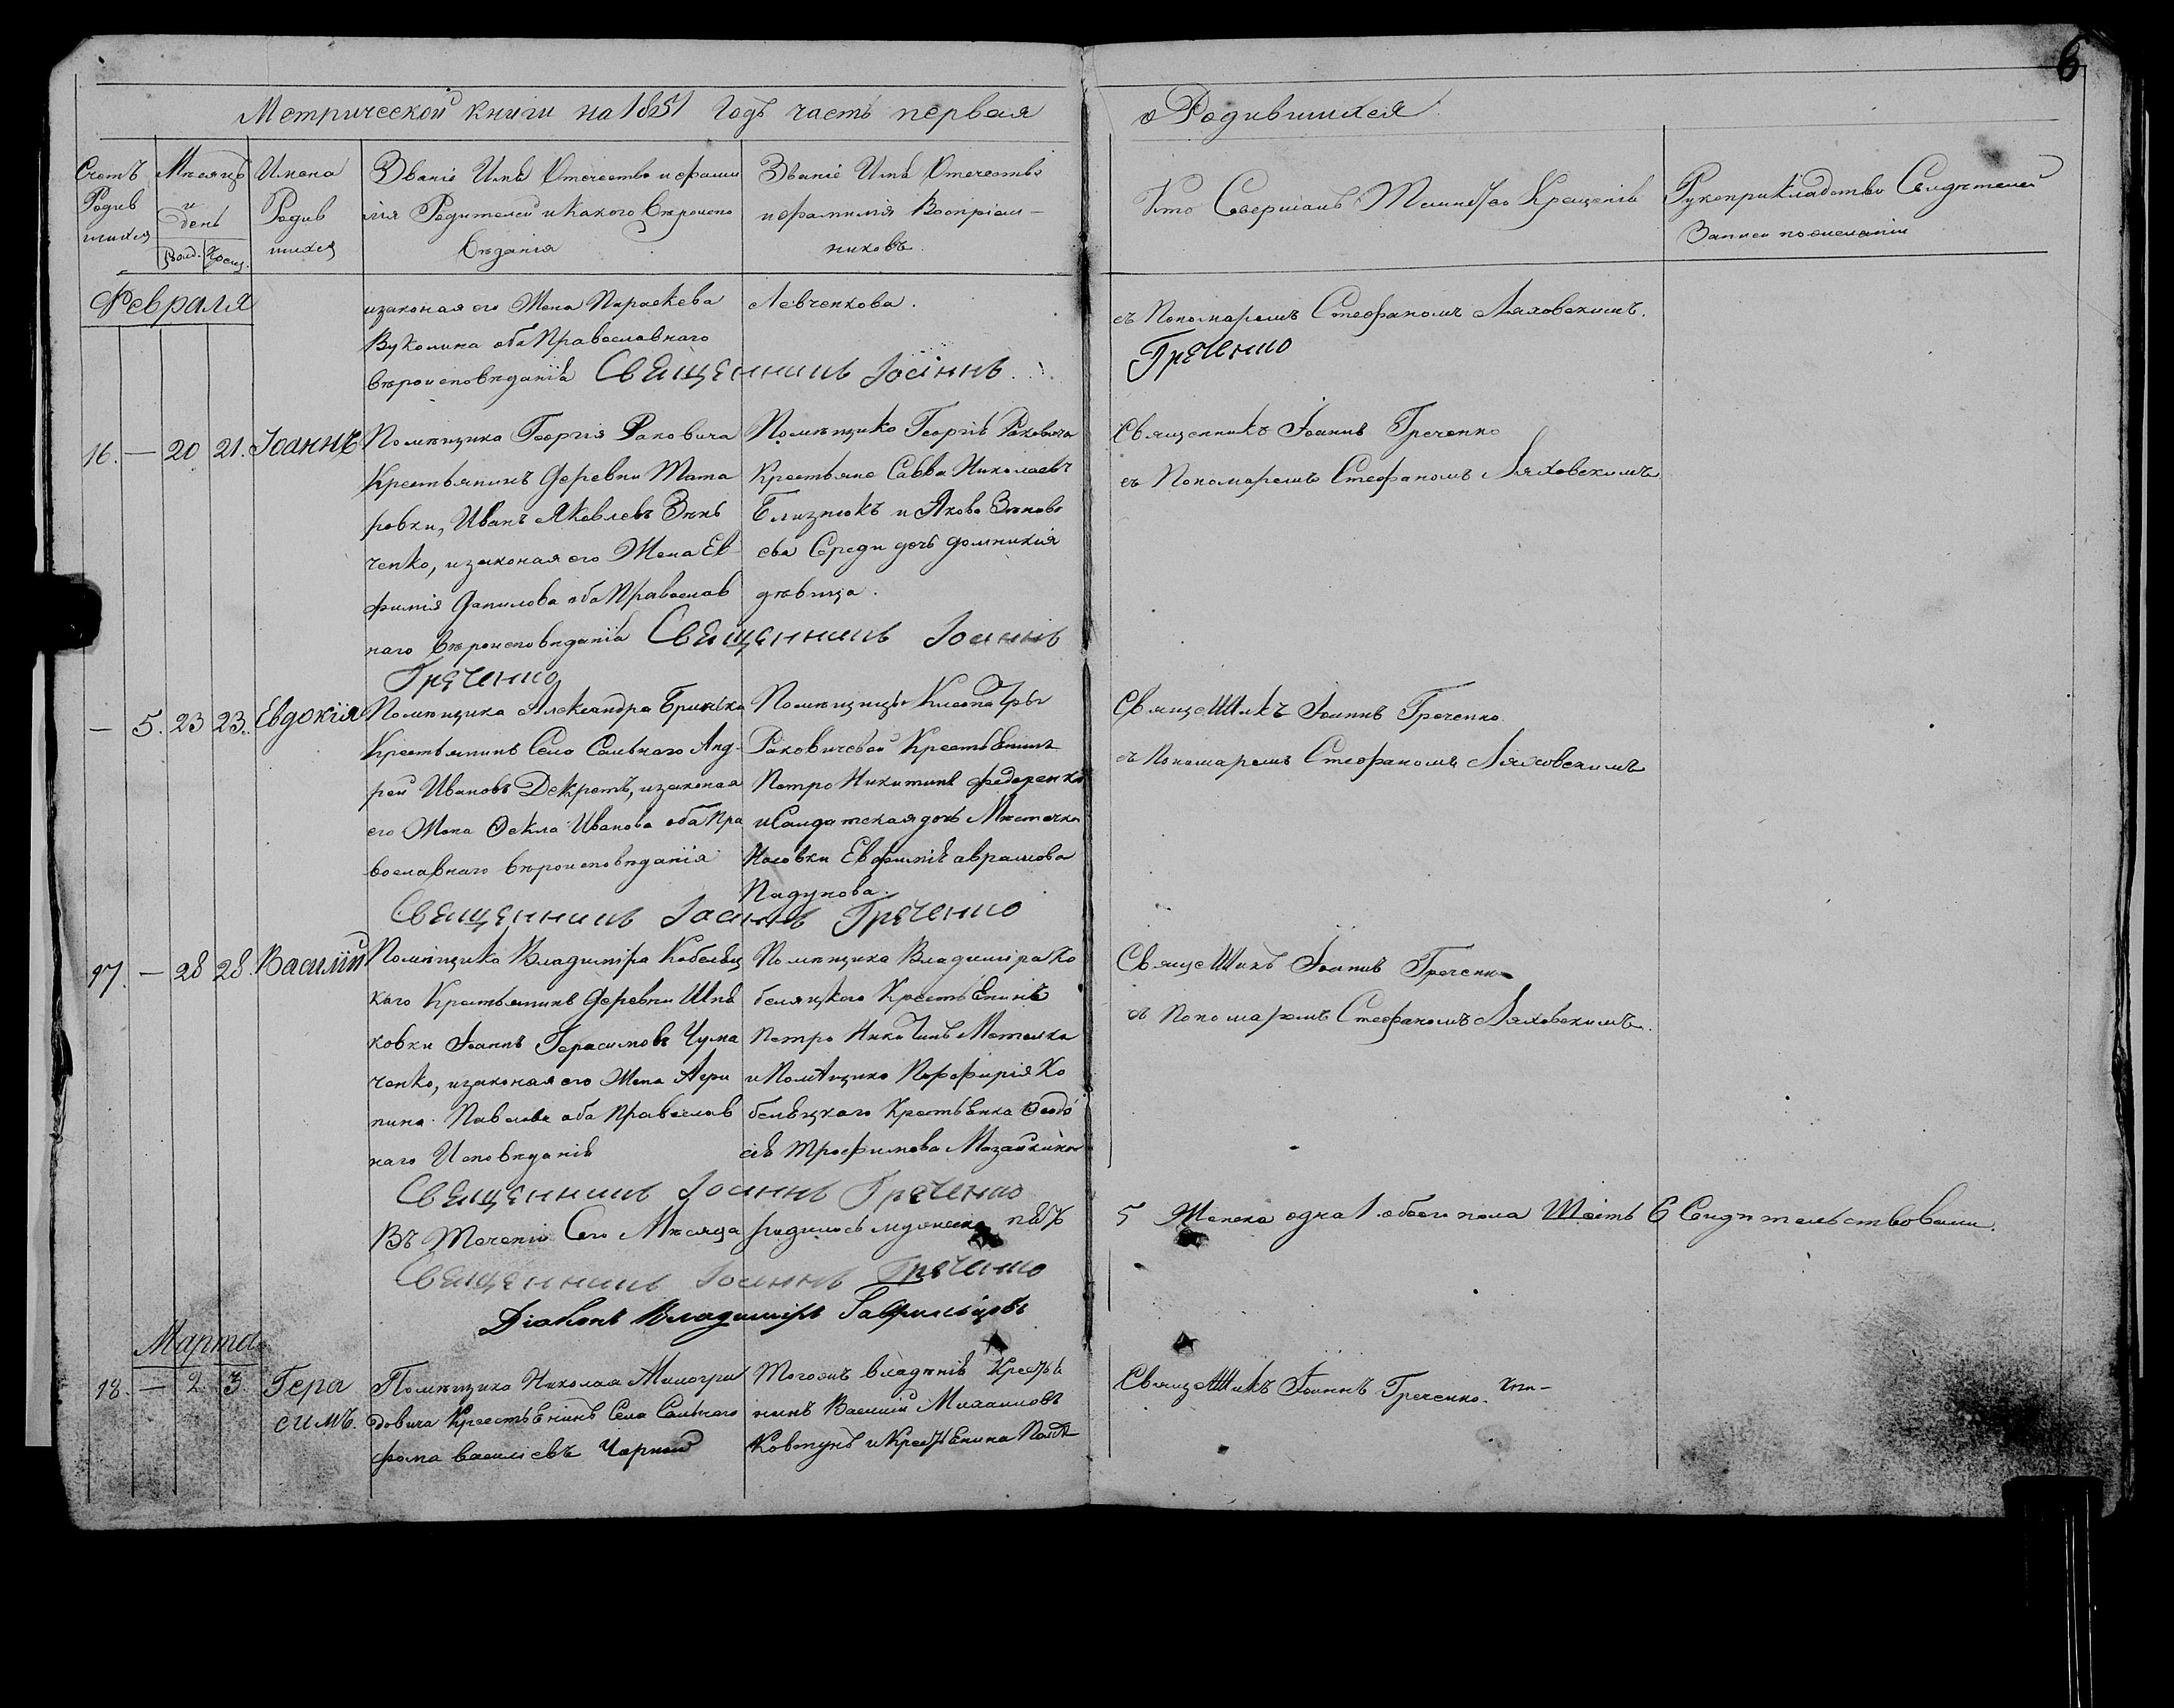 6
Метрической книги на 1851 Годъ часть первая о Родившихся
Счетъ Родив шихся
Мѣсяцъ и день
Рожд. Крещ.
Имена Родив шихся
Званіе Имя Отечество и фами
лія Родителей и Какого Вѣроиспо
вѣданія
Званіе Имя Отечество
и фамилія Воспріем-
никовъ
Кто Совершалъ Таинство Крещенія
Рукоприкладство Свидѣтелей
Записи по желанію
Февраля
изаконая его Жена Параскева
Вуколина оба Православнаго
вѣроисповѣданія Священникъ Іоаннъ
Левченкова.
съ Пономаремъ Стефаномъ Ляховскимъ.
Греченко
16. — 20 21. Іоаннъ
Помѣщика Георгія Раковича
Крестьянинъ Деревни Тата
ровки, Иванъ Яковлевъ Зѣнь
ченко, изаконая его Жена Ев
фимія Данилова оба Православ
наго вѣроисповѣданія Священникъ Іоаннъ
Греченко
Помѣщика Георгія Раковича
Крестьяне Савва Николаевъ
Близнюкъ и Якова Зѣнове
ева Середи дочь Домникія
дѣвица.
Священникъ Іоаннъ Греченко
съ Пономаремъ Стефаномъ Ляховскимъ
— 5. 23 23. Евдокія
Помѣщика Александра
Крестьянинъ Села Сальнаго Анд-
рей Ивановъ Декретъ, изаконая
его Жена Ѳекла Иванова оба Пра
вославнаго вѣроисповѣданія
Помѣщицы Клеопатры
Раковичевой Крестьянинъ
Петро Никитинъ Федоренко
и Салдатская дочь Мѣстечка
Носовки Евфимія Аврамова
Падунова.
Священникъ Іоаннъ Греченко
Священникъ Іоаннъ Греченко
съ Пономаремъ Стефаномъ Ляховскимъ
17. — 28 28. Василій
Помѣщика Владиміра Кобеляц
каго Крестьянинъ Деревни Шпа
ковки Іоаннъ Герасимовъ Чума
ченко, изаконая его Жена Агри
пина Павлова оба Православ
наго Исповѣданія
Помѣщика Владиміра Ко
беляцкого Крестьянинъ
Петро Никитинъ Метелка
и Помѣщика Порфирія Ко
беляцкаго Крестьянка Ѳеодо
сія Трофимова
Священникъ Іоаннъ Греченко
Священникъ Іоаннъ Греченко
съ Пономаремъ Стефаномъ Ляховскимъ.
Въ Теченіи Сего Мѣсяца родилось мужеска пять 5 Женска одна 1 обоего пола Шесть 6 Свидѣтельствовали.
Священникъ Іоаннъ Греченко
Діаконъ Владиміръ
Марта
18. — 2 3. Гера
симъ.
Помѣщика Николая Милогра
довича Крестьянинъ Села Сальнаго
фома василіевъ Чорный
Тогожъ владѣнія Кресть
нинъ Василій Михаиловъ
Ковтунъ и Крестьянина
Священникъ Іоаннъ Греченко.